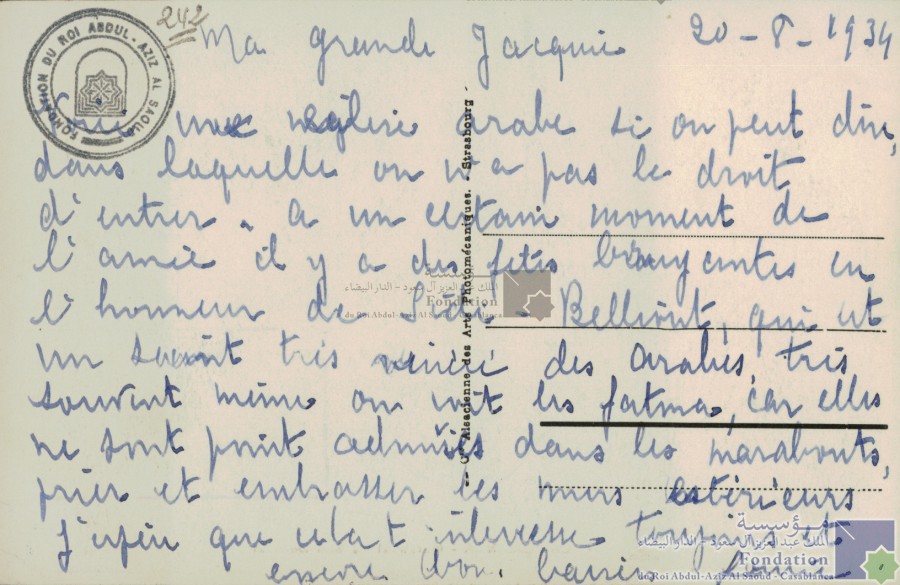 242
Ma grande Jacquie 20-8-1934
FONDATION DU ROI ABDUL-AZIZ AL SAOUD
une église arabe si on peut dire,
dans laquelle on n'a pas le droit
d'entrer. A un certain moment de
l'année il y a des fêtes bruyantes en
l'honneur de Sidi-Belliout, qui est
un saint très vénéré des arabes, très
souvent même on voit les fatmas, car elles
ne sont point admises dans les marabouts,
prier et embrasser les murs extérieurs
J'espère que cela t'interesse toujours et
encore bons baisers
Cie Alsacienne des Arts Photomécaniques. - Strasbourg
مؤسسة
الملك عبد العزيز آل سعود - الدار البيضاء
Fondation
du Roi Abdul-Aziz Al Saoud - Casablanca
مؤسسة
الملك عبد العزيز آل سعود - الدار البيضاء
Fondation
du Roi Abdul-Aziz Al Saoud - Casablanca